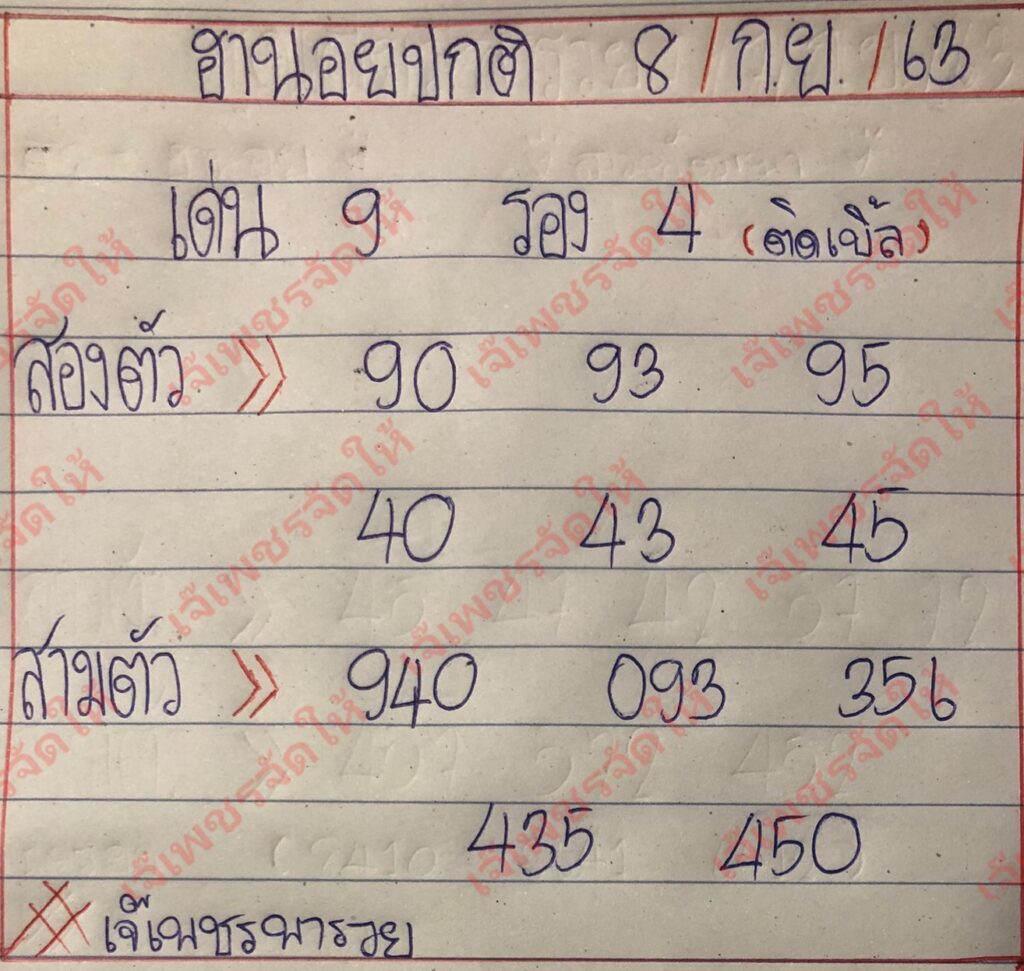 ฮานอยปกติ 8/ก.ย./63
เด่น 9 รอง 4 (ติดเบิ้ล)
สองตัว >> 90 93 95
40 43 45
สามตัว >> 940 093 356
435 450
เจ๊เพชรพารวย
เจ๊เพชรจัดให้